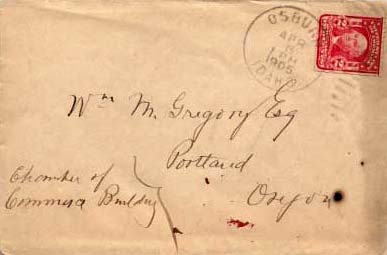 OSBURN
APR
PM
1905
IDAHO
Wm M. Gregory Esq
Portland
Oregon
Chamber of
Commerce Building